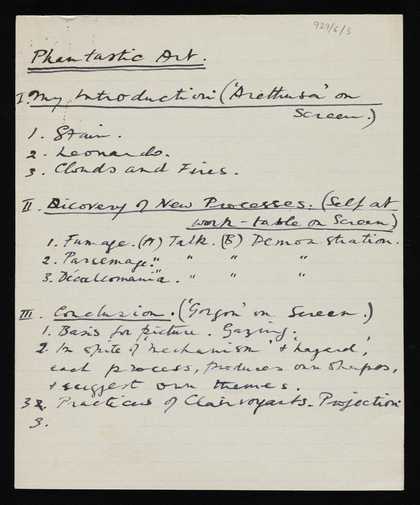 929/6/3
Phantastic Art.
I. My Introduction ('Arethusa' on
Screen.)
1. Stain.
2. Leonardo.
3. Clouds and Fires.
II. Dicovery of New Processes. (Self at
work-table on Screen)
1. Fumage. (A) Talk. (B) Demonstration.
2. Parsemage. " " " "
3. Décalcomania. " " "
III. Conclusion. ('Gorgon' on Screen.)
1. Basis for picture. Gazing.
2. In spite of 'mechanism' & 'hazard',
each process, produces own shapes,
& suggest own themes.
3 2. Practices of Clairvoyants. Projection
3.